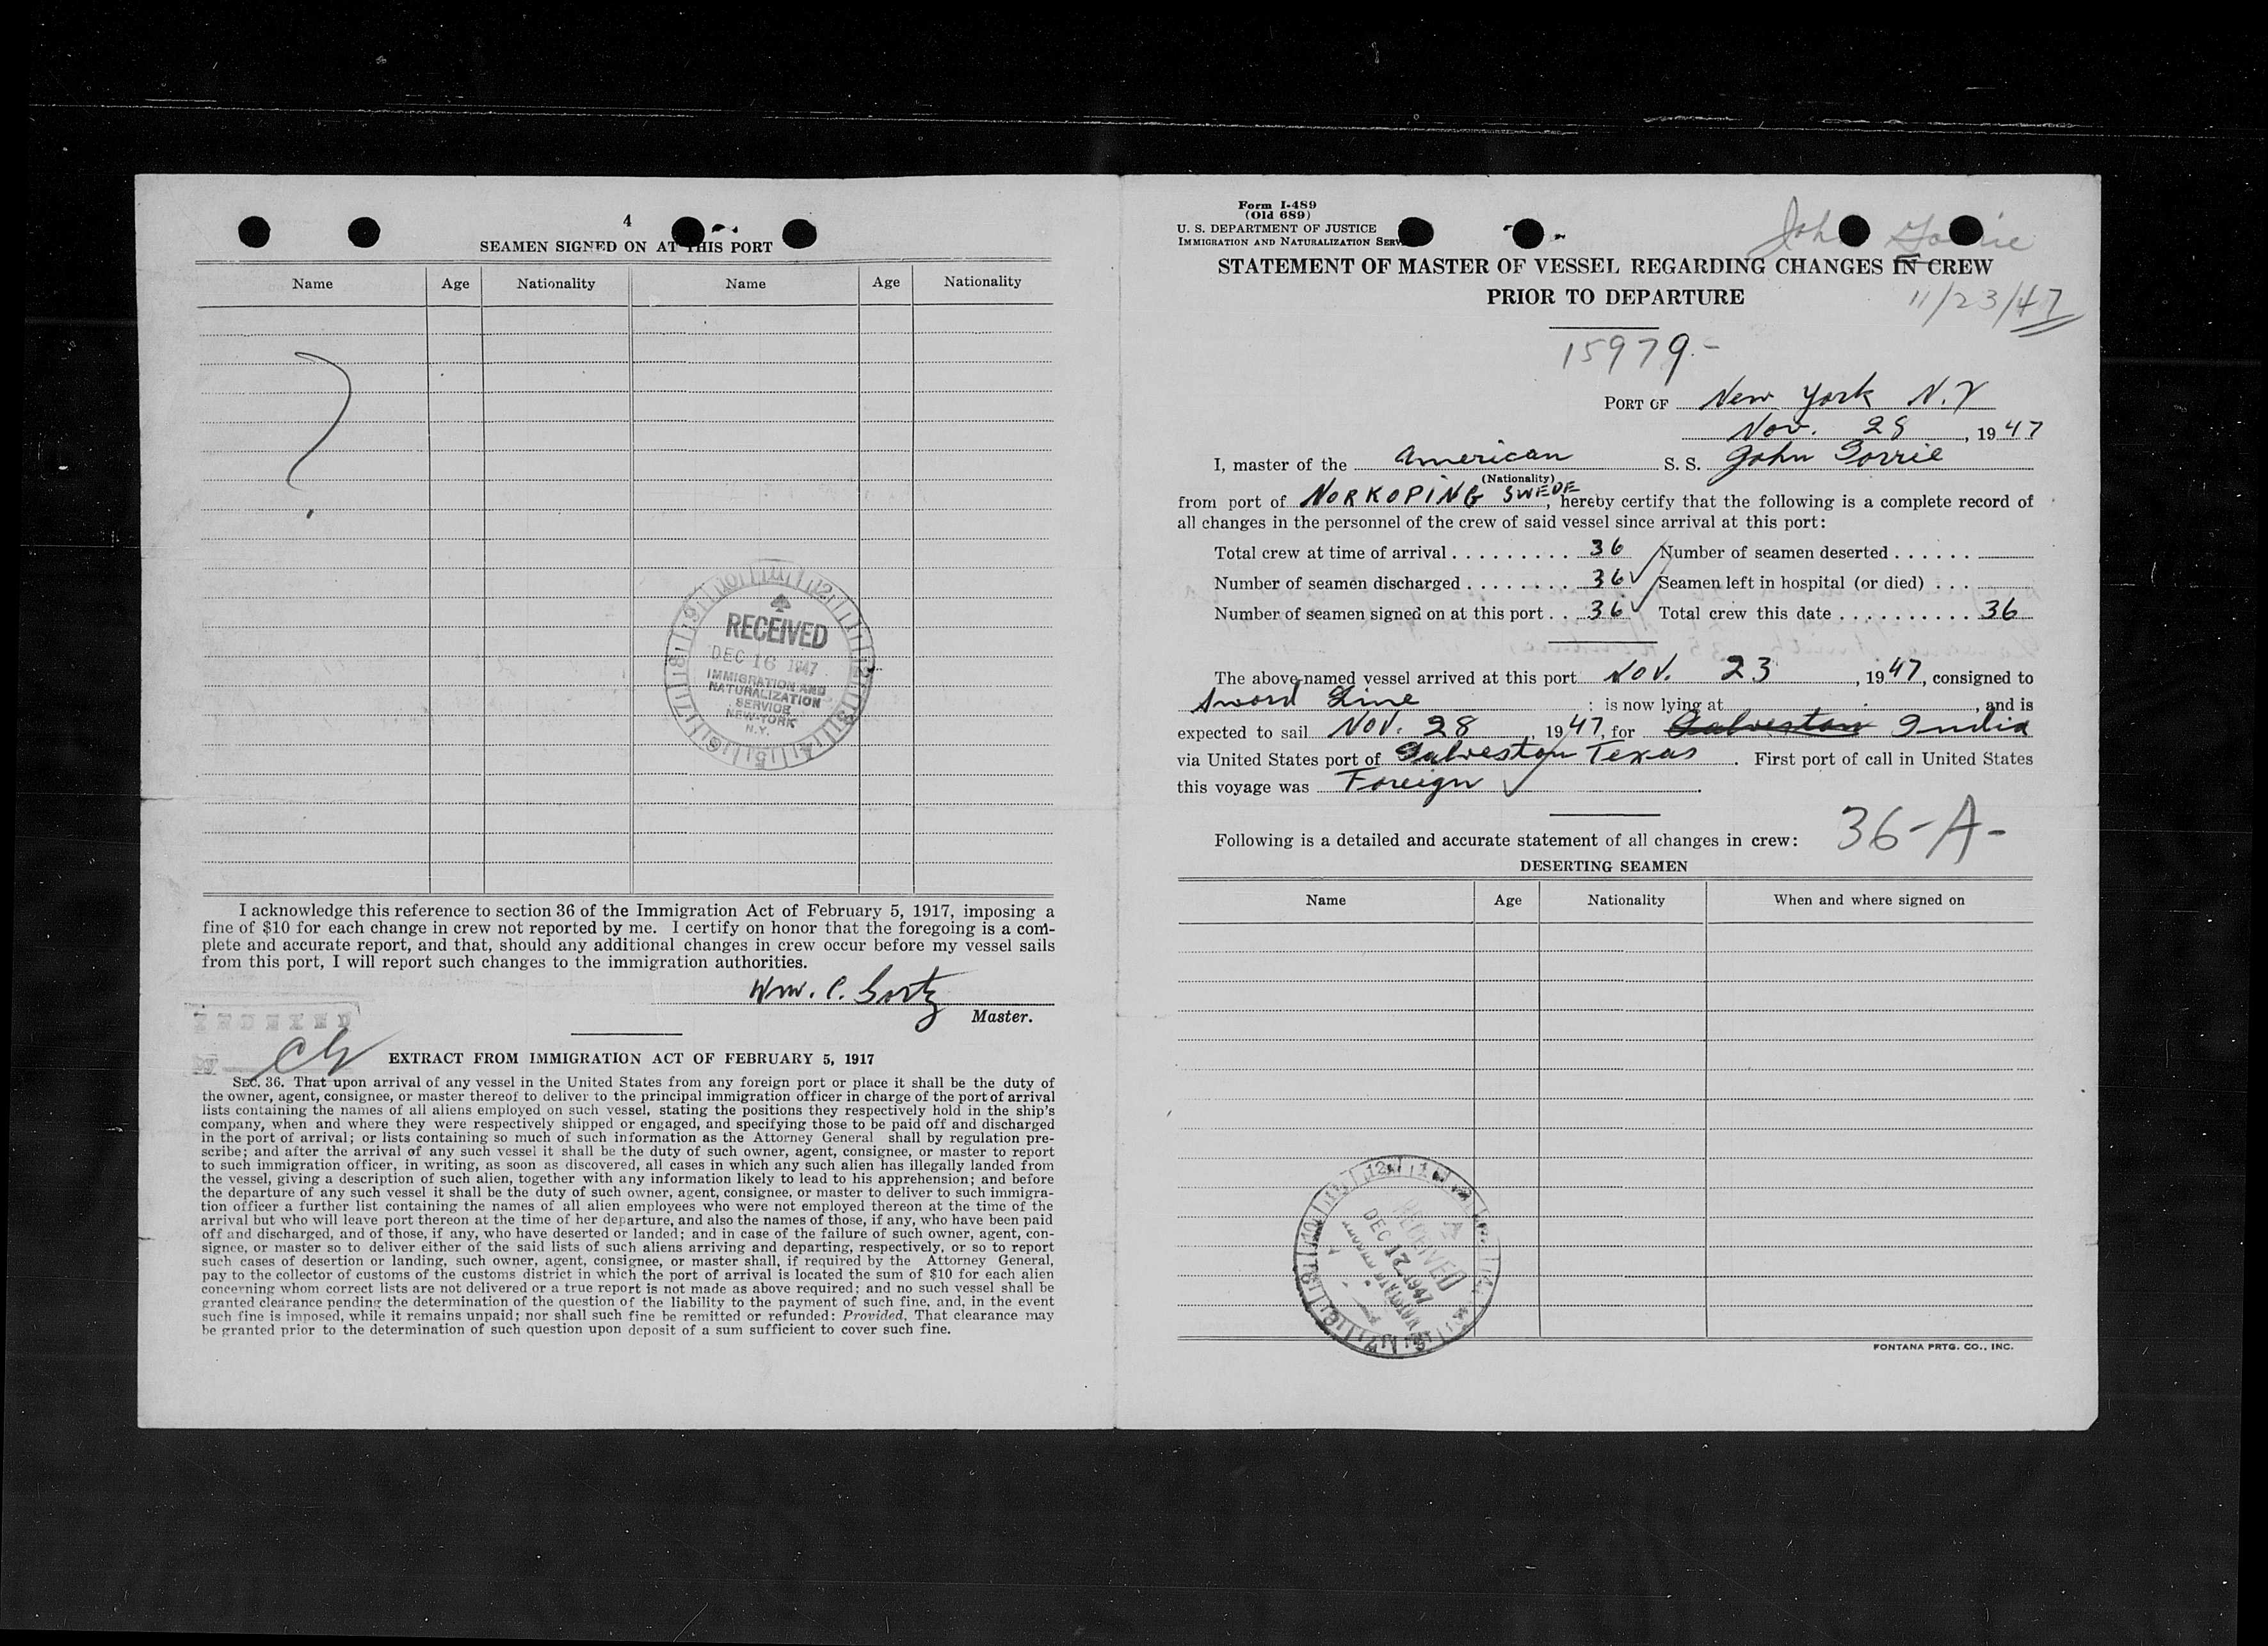 4
SEAMEN SIGNED ON AT THIS PORT
Name Age Nationality Name Age Nationality
?
RECEIVED
DEC 16 1947
IMMIGRATION AND
NATURALIZATION
SERVICE
NEW-YORK
N.Y.
I acknowledge this reference to section 36 of the Immigration Act of February 5, 1917, imposing a
fine of $10 for each change in crew not reported by me. I certify on honor that the foregoing is a com-
plete and accurate report, and that, should any additional changes in crew occur before my vessel sails
from this port, I will report such changes to the immigration authorities.
Wm. C. Gortz
Master.
EXTRACT FROM IMMIGRATION ACT OF FEBRUARY 5, 1917
SEC. 36. That upon arrival of any vessel in the United States from any foreign port or place it shall be the duty of
the owner, agent, consignee, or master thereof to deliver to the principal immigration officer in charge of the port of arrival
lists containing the names of all aliens employed on such vessel, stating the positions they respectively hold in the ship's
company, when and where they were respectively shipped or engaged, and specifying those to be paid off and discharged
in the port of arrival; or lists containing so much of such information as the Attorney General shall by regulation pre-
scribe; and after the arrival of any such vessel it shall be the duty of such owner, agent, consignee, or master to report
to such immigration officer, in writing, as soon as discovered, all cases in which any such alien has illegally landed from
the vessel, giving a description of such alien, together with any information likely to lead to his apprehension; and before
the departure of any such vessel it shall be the duty of such owner, agent, consignee, or master to deliver to such immigra-
tion officer a further list containing the names of all alien employees who were not employed thereon at the time of the
arrival but who will leave port thereon at the time of her departure, and also the names of those, if any, who have been paid
off and discharged, and of those, if any, who have deserted or landed; and in case of the failure of such owner, agent, con-
signee, or master so to deliver either of the said lists of such aliens arriving and departing, respectively, or so to report
such cases of desertion or landing, such owner, agent, consignee, or master shall, if required by the Attorney General,
pay to the collector of customs of the customs district in which the port of arrival is located the sum of $10 for each alien
concerning whom correct lists are not delivered or a true report is not made as above required; and no such vessel shall be
granted clearance pending the determination of the question of the liability to the payment of such fine, and, in the event
such fine is imposed, while it remains unpaid; nor shall such fine be remitted or refunded: Provided, That clearance may
be granted prior to the determination of such question upon deposit of a sum sufficient to cover such fine.
Form I-489
(Old 689)
U. S. DEPARTMENT OF JUSTICE
IMMIGRATION AND NATURALIZATION SERV
John Gorrie
STATEMENT OF MASTER OF VESSEL REGARDING CHANGES IN CREW
PRIOR TO DEPARTURE
11/23/47
15979-
PORT OF New York N.Y
Nov. 28, 1947
I, master of the American S. S. John Gorrie
(Nationality)
from port of NORKOPING SWEDE, hereby certify that the following is a complete record of
all changes in the personnel of the crew of said vessel since arrival at this port:
Total crew at time of arrival . . . . . . . . . 36 Number of seamen deserted . . . . . .
Number of seamen discharged . . . . . . . . 36 Seamen left in hospital (or died) . . .
Number of seamen signed on at this port . . 36 Total crew this date . . . . . . . . . . 36
The above-named vessel arrived at this port NOV. 23, 1947, consigned to
Sword Line : is now lying at , and is
expected to sail NOV. 28 1947, for Galveston India
via United States port of Galveston Texas. First port of call in United States
this voyage was Foreign
36-A-
Following is a detailed and accurate statement of all changes in crew:
DESERTING SEAMEN
Name Age Nationality When and where signed on
RECEIVED
DEC 17 1947
FONTANA PRTG. CO., INC.